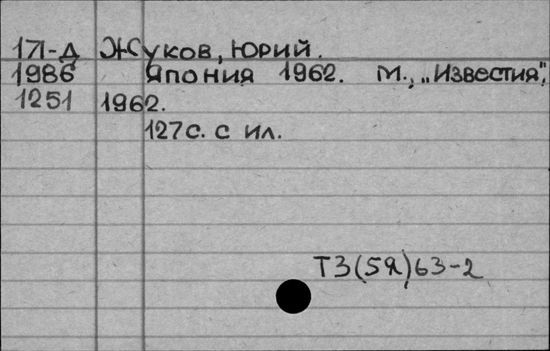 17-д Жуков, Юрий.
1986 Япония 1962. М., „Известия",
1251 1962.
127с. с ил.
Т3(5Я)63-2